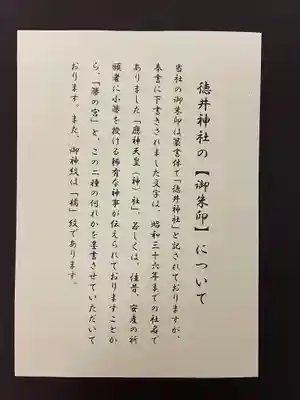 徳井神社の【御朱印】について
当社の御朱印は篆書体で「徳井神社」と記されておりますが、
奉書に下書きされました文字は、昭和三十六年までの社名で
ありました「應神天皇(神)社」、若しくは、往昔、安産の祈
願者に小藤を授ける稀有な神事が伝えられておりますことか
ら、「藤の宮」と、この二種の何れかを墨書させていただいて
おります。また、御神紋は「橘」紋であります。